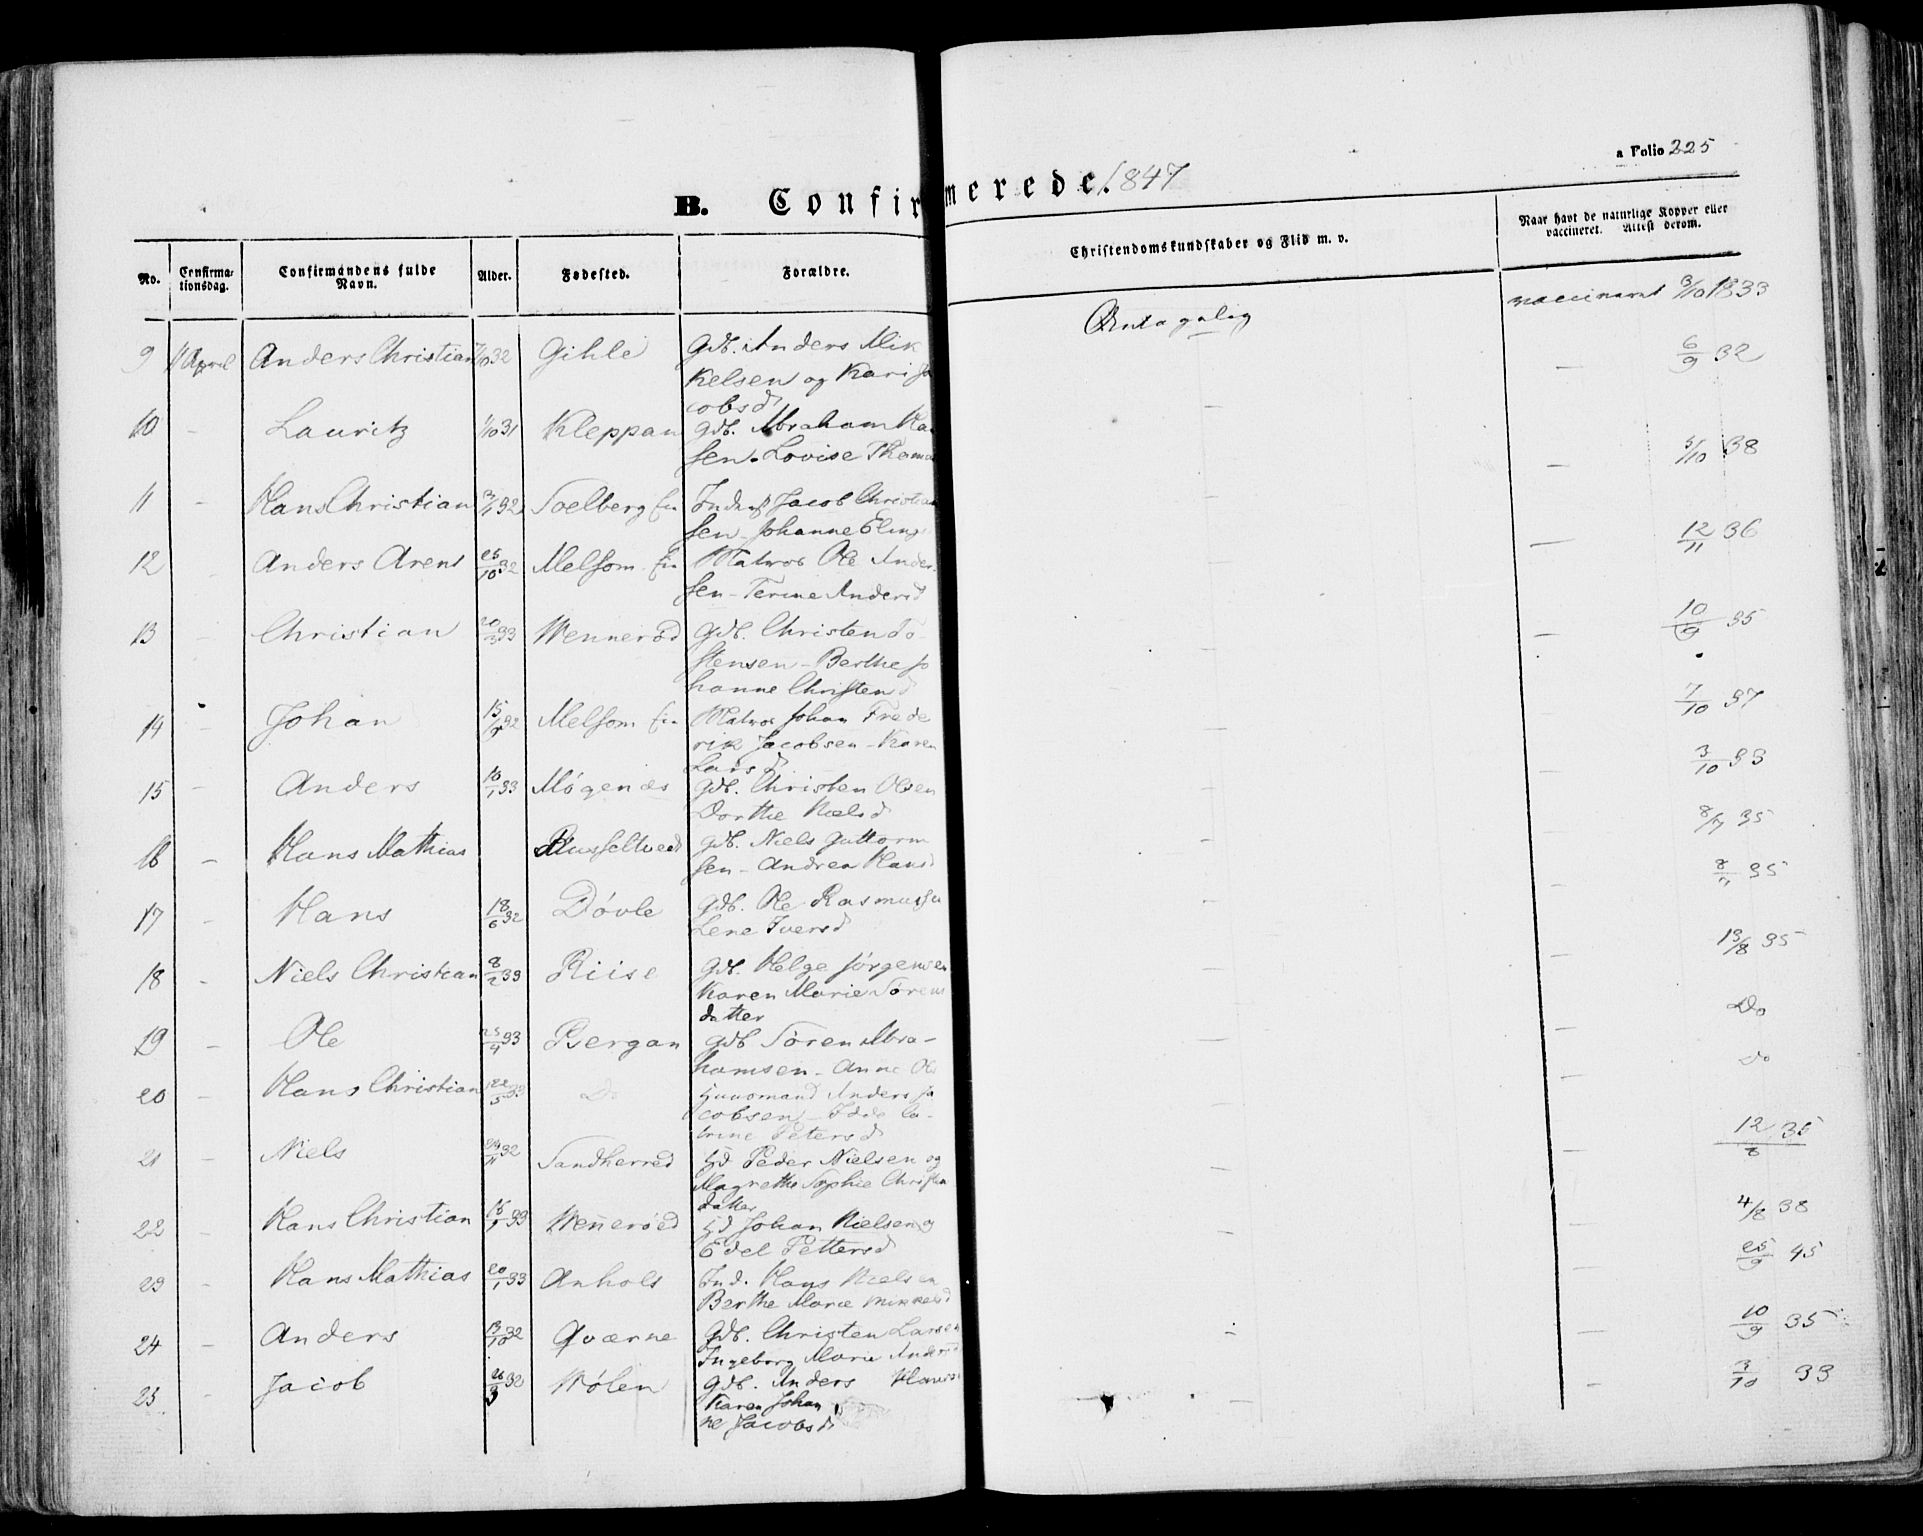 a Folio 225
B. Confirmerede. 1847
No.
Confirmationsdag.
Confirmandens fulde Navn.
Alder.
Fødested.
Forældre.
Christendomskundskaber og Flid m. v.
Naar havt de naturlige Kopper eller vaccineret. Attest derom.
9 11 April Anders Christian 32 Gihle Gdb. Anders Mik
kelsen og Kari Ja
cobsd
Antagelig vaccineret 3/10 1833
10 - Lauritz 1/10 31 Kleppan Gdb. Abraham Han
sen. Lovise Thoma
- - 6/9 32
11 - Hans Christian 32 Soelberg Inderst Jacob Christian
sen - Johanne Eling
- - 5/10 38
12 - Anders Arent 26/10 32 Melsom Matros Ole Ander
sen - Terine Andersd
- - 12/11 36
13 - Christian 20/3 33 Wennerød Gdb. Christen To
stensen - Berthe Jo
hanne Christend
- - 10/9 35
14 - Johan 15/9 32 Melsom Matros Johan Frede
rik Jacobsen - Karen
Larsd
- - 7/10 37
15 - Anders 16/1 33 Møgenæs Gdb. Christen Olsen
Dorthe Nielsd
- - 3/10 33
16 - Hans Mathias Russeltvedt Gdb. Niels Guttorm
sen - Andrea Hansd
- - 8/7 35
17 - Hans 18/6 32 Døvle Gdb. Ole Rasmussen
Lene Iversd
- - 8/7 35
18 - Niels Christian 8/2 33 Riise Gdb. Helge Jørgensen
Karen Marie Sørens
datter
- - 13/8 35
19 - Ole 25/4 33 Bergan Gdb Søren Abra-
hamsen - Anne Ols
- - Do
20 - Hans Christian 22/3 33 Do Huusmand Anders Ja
cobsen - Ca-
trine Petersd
- - Do
21 - Niels 24/11 32 Sandherred Hd Peder Nielsen og
Magrethe Sophie Christen
datter
- - 12/8 35
22 - Hans Christian 33 Wennerøed Hd Johan Nielsen og
Edel Pettersd
- - 4/8 38
23 - Hans Mathias 20/1 33 Anholt Ind. Hans Nielsen
Berthe Marie Mikkelsd
- 25/9 45
24 - Anders 13/10 32 Qværne Gdb. Christen Larsen
Ingeborg Marie Andersd
- - 10/9 35
25 - Jacob 26/3 32 Wølen Gdb. Anders Hans
Karen Johan
ne Jacobsd
- - 3/10 33